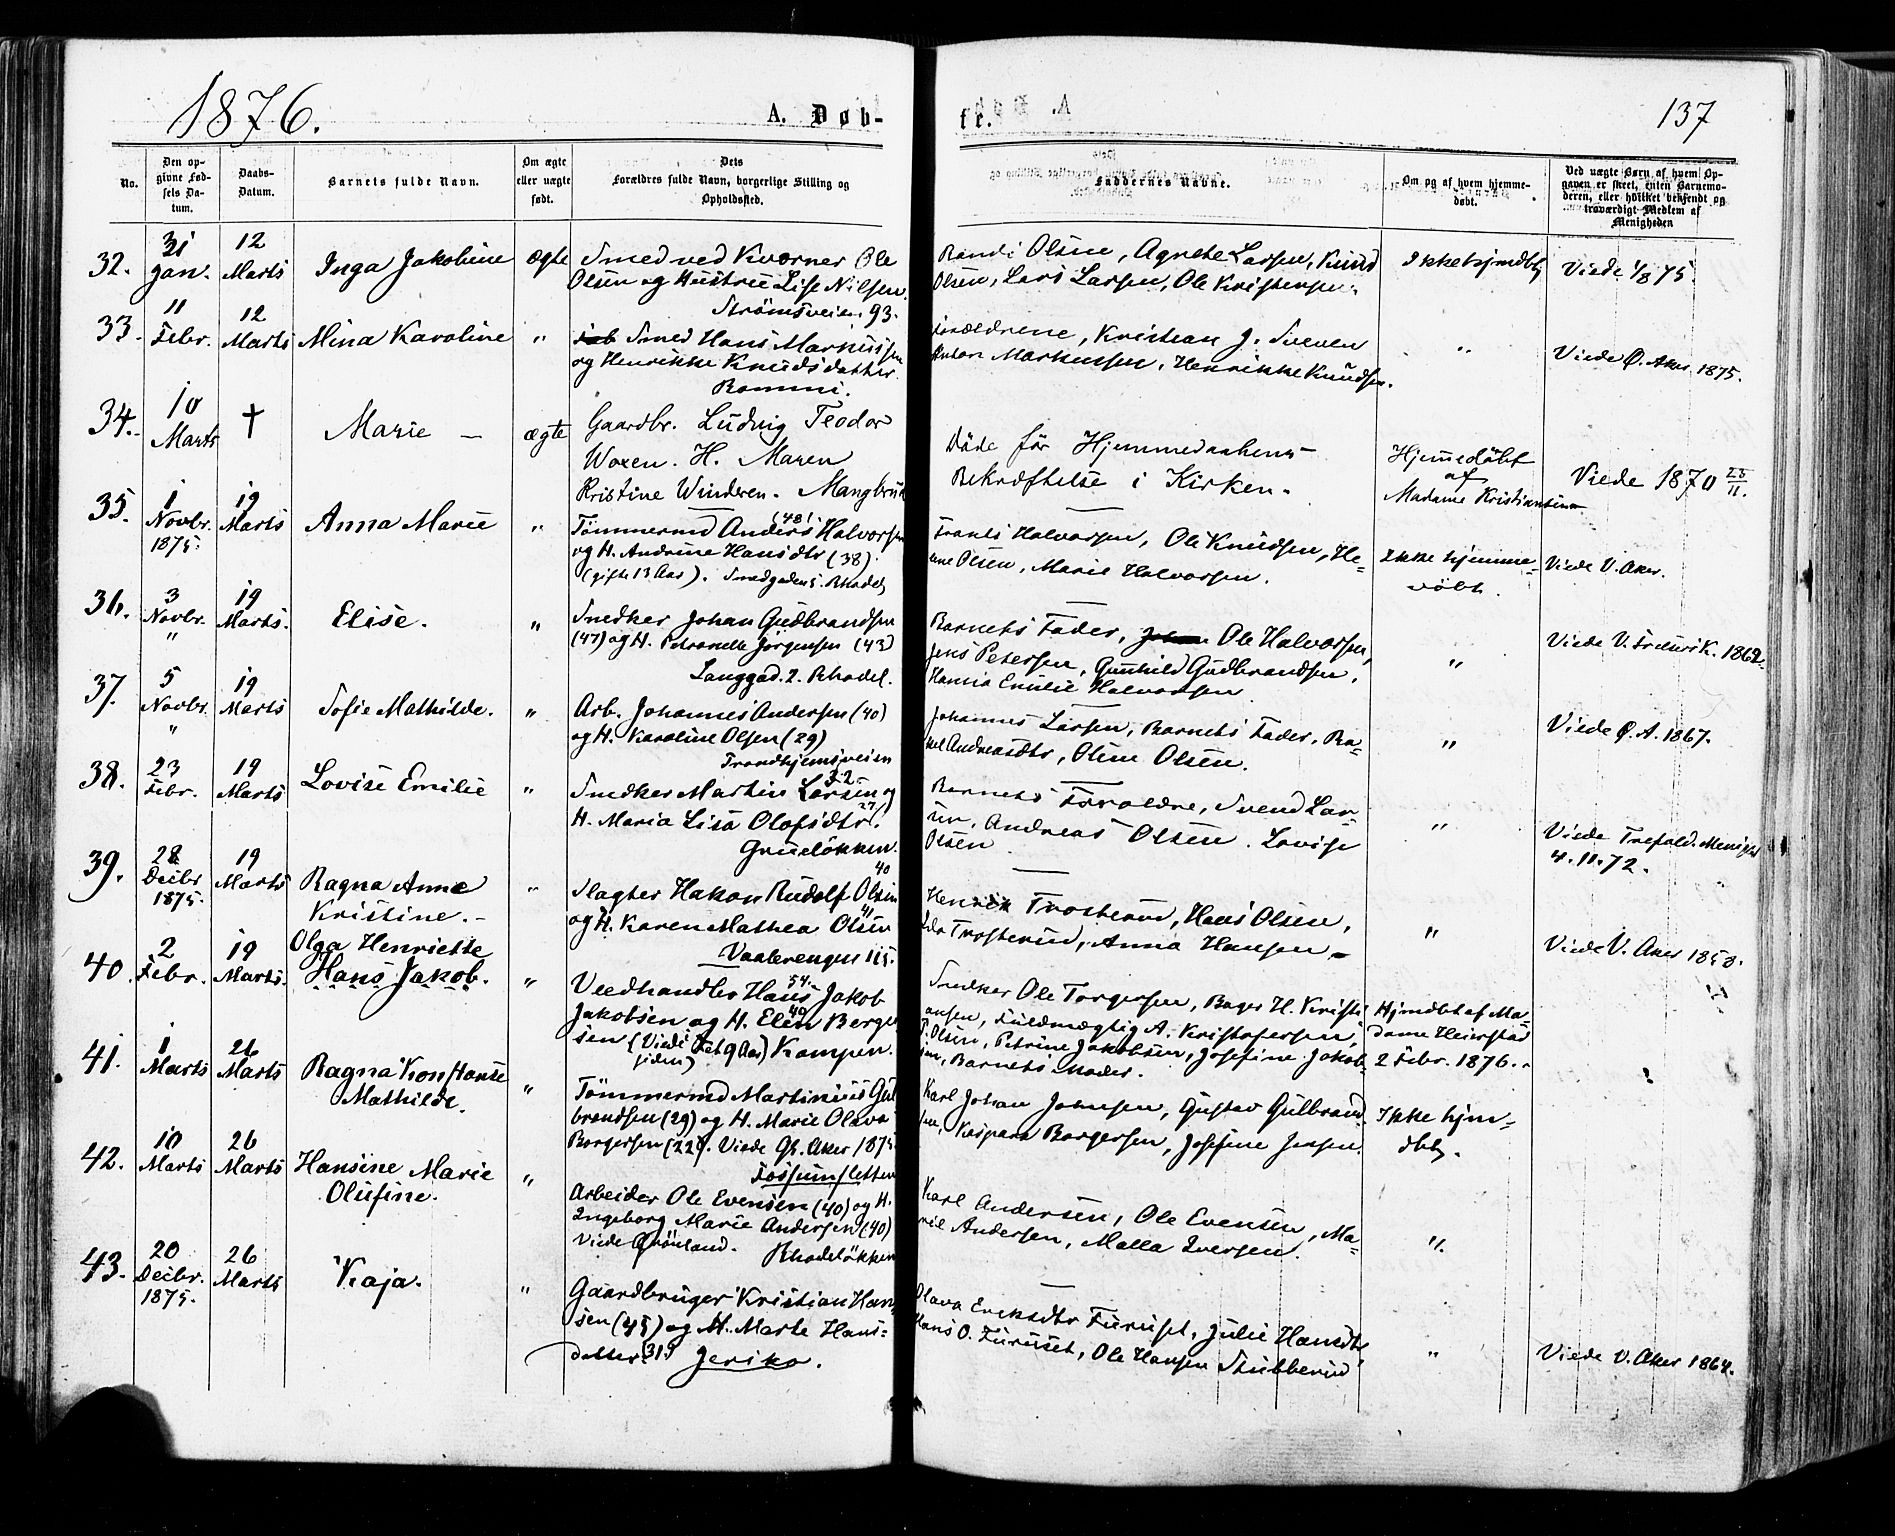 1876.
A. Døb-
te.
137
No.
Den op-
givne Fød-
sels Da-
tum.
Daabs-
Datum.
Barnets fulde Navn.
Om ægte
eller uægte
født.
Dets
Forældres fulde Navn, borgerlige Stilling og
Opholdssted.
Faddernes Navne.
Om og af hvem hjemme-
døbt.
Ved uægte Børn af hvem Op-
gaven er skeet, enten Barnemo-
deren, eller hvilket bekjendt og
troværdigt Medlem af
Menigheden
32.
31
Jan.
12
Marts
Inga Jakobine
ægte
Smed ved Kværner Ole
Olsen og Hustrue Lise Nilsen
Strömsveien 93.
Randi Olsen, Agnete Larsen, Knud
Olsen, Lars Larsen, Ole Kristensen.
Ikke hjmdbt
Viede 1/8 75.
33.
11
Febr.
12
Marts
Mina Karoline
"
Smed Hans Markussen
og Henrikke Knudsdatter
Rommi.
Forældrene, Kristian J. Sveen
Anton Markussen, Henrikke Knudsen.
"
Viede Ø. Aker 1875.
34.
10
Marts
†
Marie —
ægte
Gaardbr. Ludvig Teodor
Woxen. H. Maren
Kristine Winderen. Mangbruk
Döde för Hjemmedaabens
Bekræftelse i Kirken.
Hjemedöbt
af
Madame Kristiansen
Viede 1870 25/11.
35.
1
Novbr.
1875.
19
Marts
Anna Marie
"
Tömmermd Anders (48) Halvorsen
og H. Andrine Hansdtr (38).
(gifte 13 Aar). Smedgaden 5. Rhodel
Frants Halvorsen, Ole Knudsen, He-
lene Olsen, Marie Halvorsen.
Ikke hjemme-
döbt.
Viede V. Aker.
36.
3
Novbr.
"
19
Marts.
Elise.
"
Snedker Johan Gudbrandsen
(47) og H. Petronelle Jörgensen (43)
Langgad. 2. Rhodel.
Barnets Fader, Ole Halvorsen,
Jens Petersen, Gunhild Gudbrandsen,
Hansia Emilie Halvorsen
"
37.
5
Novbr.
"
19
Marts
Sofie Mathilde.
"
Arb. Johannes Andersen (40)
og H. Karoline Olsen (29)
Trondhjemsveien
Johannes Larsen, Barnets Fader, Ra-
kel Andreasdtr, Oline Olsen.
"
Viede Ø. A. 1867.
38.
23
Febr.
19
Marts
Lovise Emilie
"
Snedker Martin Larsen 32 og
H. Maria Lisa Olofsdtr. 27)
Grüelökken.
Barnets Forældre, Svend Lar-
sen, Andreas Olsen. Lovise
Olsen
"
Viede Trefold. Menighed
4.11.72.
39.
28
Decbr
1875.
19
Marts
Ragna Anne
Kristine. -
"
Slagter Hakon Rudolf Olsen 40
og H. Karen Mathea Olsen 41
Vaalerengen 115.
Henrik Trosterud, Hans Olsen,
Ida Trosterud, Anna Hansen
"
Viede V. Aker 1858.
40.
2
Febr.
19
Marts.
Olga Henriette
Hans Jakob.
"
Vedhandler Hans 54. Jakob
Jakobsen og H. Elen 40 Berge
sen (Viede Aar siden) Kampen.
Snedker Ole Torgersen, Bager H. Kristi
ansen, Fuldmægtig A. Kristofersen,
P. Olsen, Petrine Jakobsen, Josefine Jakob-
sen, Barnets Moder.
Hjmdbt af Ma
dame Heierstad
2 Febr. 1876.
41.
1
Marts
26
Marts
Ragna Konstanse
Mathilde.
"
Tömmermd Martinius Gul
brandsen (29) og H. Marie Olava
Borgersen (22). Viede Gl. Aker 1875
Fossumsletten
Karl Johan Johnsen, Gustav Gulbrand-
sen, Kaspara Borgersen, Josefine Jensen.
Ikke hjm-
dbt.
42.
10
Marts
26
Marts
Hansine Marie
Olufine.
"
Arbeider Ole Evensen (40) og H.
Ingeborg Marie Andersen (40)
Viede Grönland. Rhodelökken
Karl Andersen, Ole Evensen, Ma-
rie Andersen, Malla Iversen.
"
43.
20
Decbr.
1875.
26
Marts
Kaja.
"
Gaardbruger Kristian Han
sen (45) og H. Marte Hans-
datter (31) Jeriko.
Olava Eriksdtr Furuset, Julie Hansdtr
Hans O. Furuset, Ole Hansen Stubberud
"
Viede V. Aker 1864.